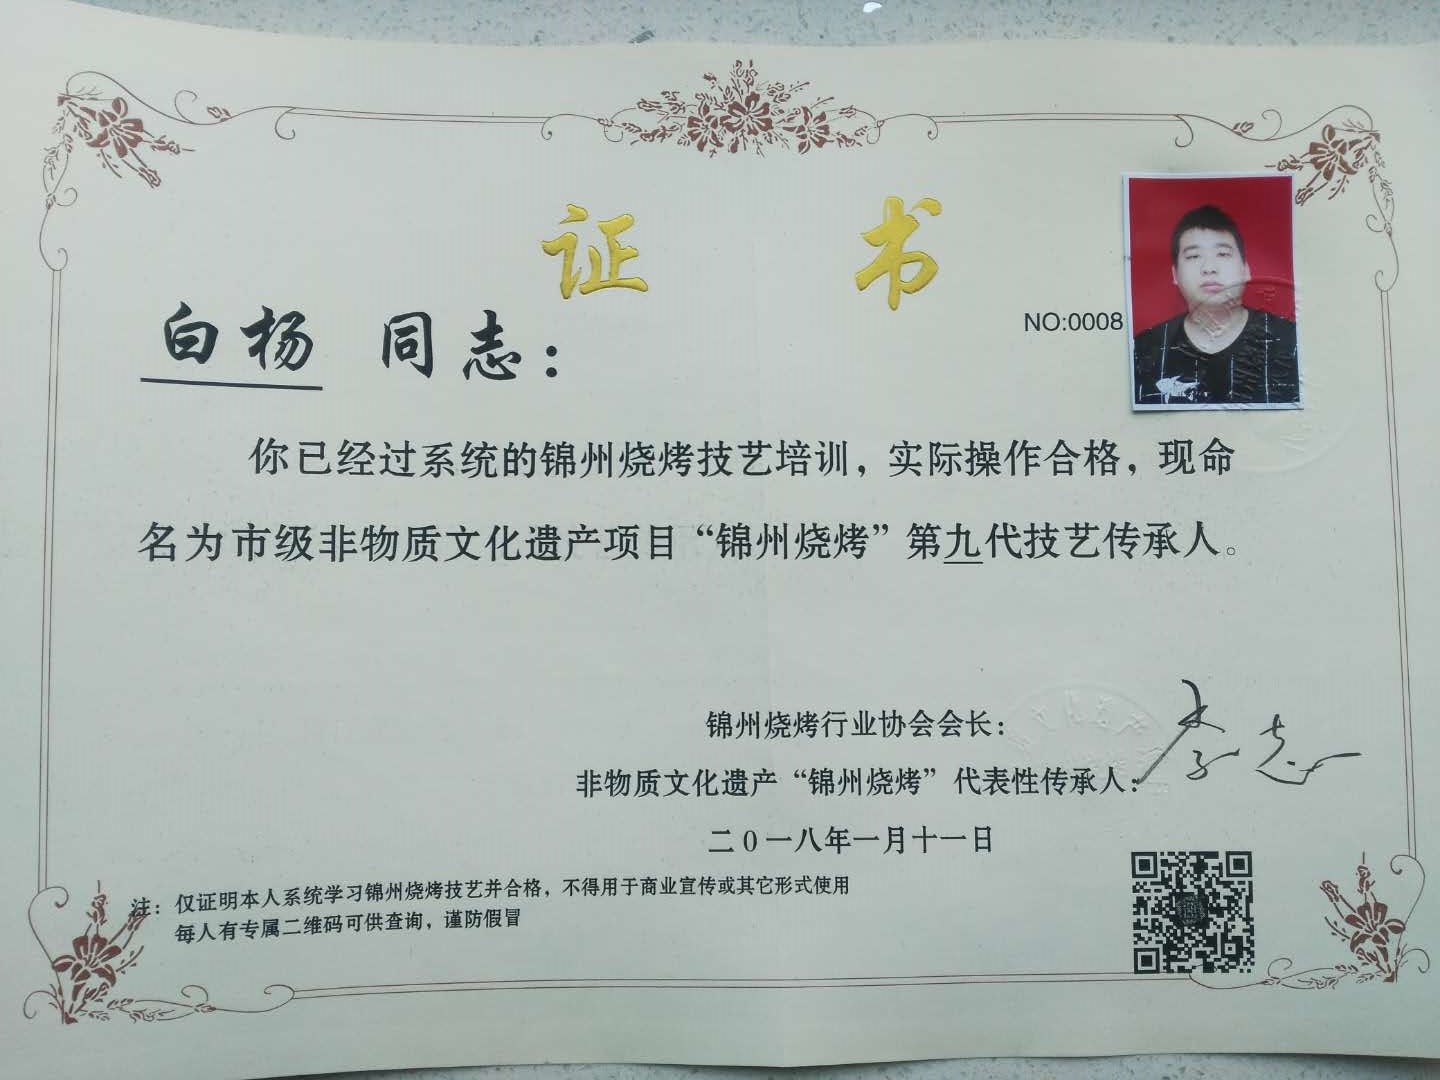 证 书
NO:0008
白杨 同志：
你已经过系统的锦州烧烤技艺培训，实际操作合格，现命
名为市级非物质文化遗产项目“锦州烧烤”第九代技艺传承人。
锦州烧烤行业协会会长：
非物质文化遗产“锦州烧烤”代表性传承人：
李志
二0一八年一月十一日
注：仅证明本人系统学习锦州烧烤技艺并合格，不得用于商业宣传或其它形式使用
每人有专属二维码可供查询，谨防假冒